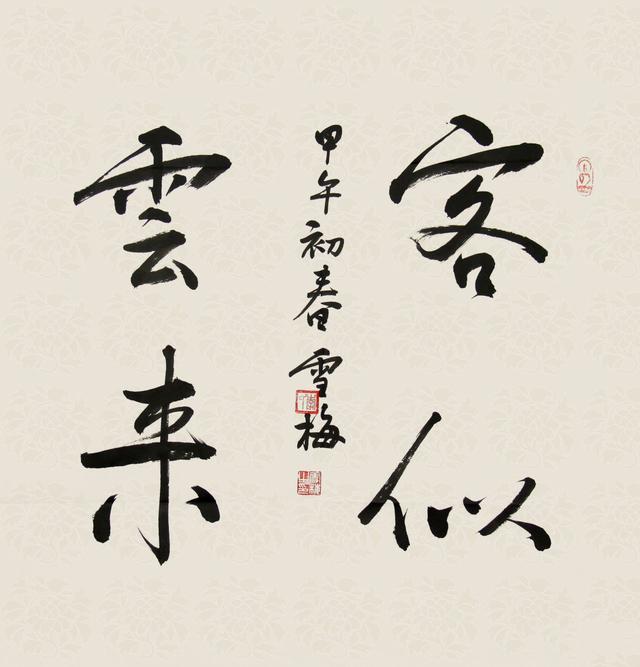 客似
雲來
甲午初春雪梅